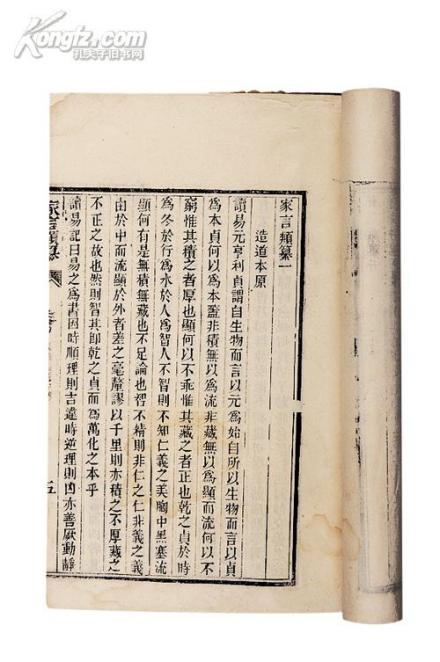 Kongfz.com
孔夫子旧书网
家言類纂一
造道本原
讀易元亨利貞謂自生物而言以元爲始自所以生物而言以貞
爲本貞何以爲本蓋非積無以爲流非藏無以爲顯而流何以不
窮惟其積之者厚也顯何以不乖惟其藏之者正也乾之貞於時
爲冬於行爲水於人爲智人不智則不知仁義之美胸中黑塞流
顯何有是無積無藏也不足論也習不精則非仁之仁非義之義
由於中而流顯於外者差之毫釐謬以千里則亦積之不厚藏之
不正之故也然則智其卽乾之貞而爲萬化之本乎
讀易記曰易之爲書因時順理則吉違時逆理則凶亦善厥動靜
家言類纂
五